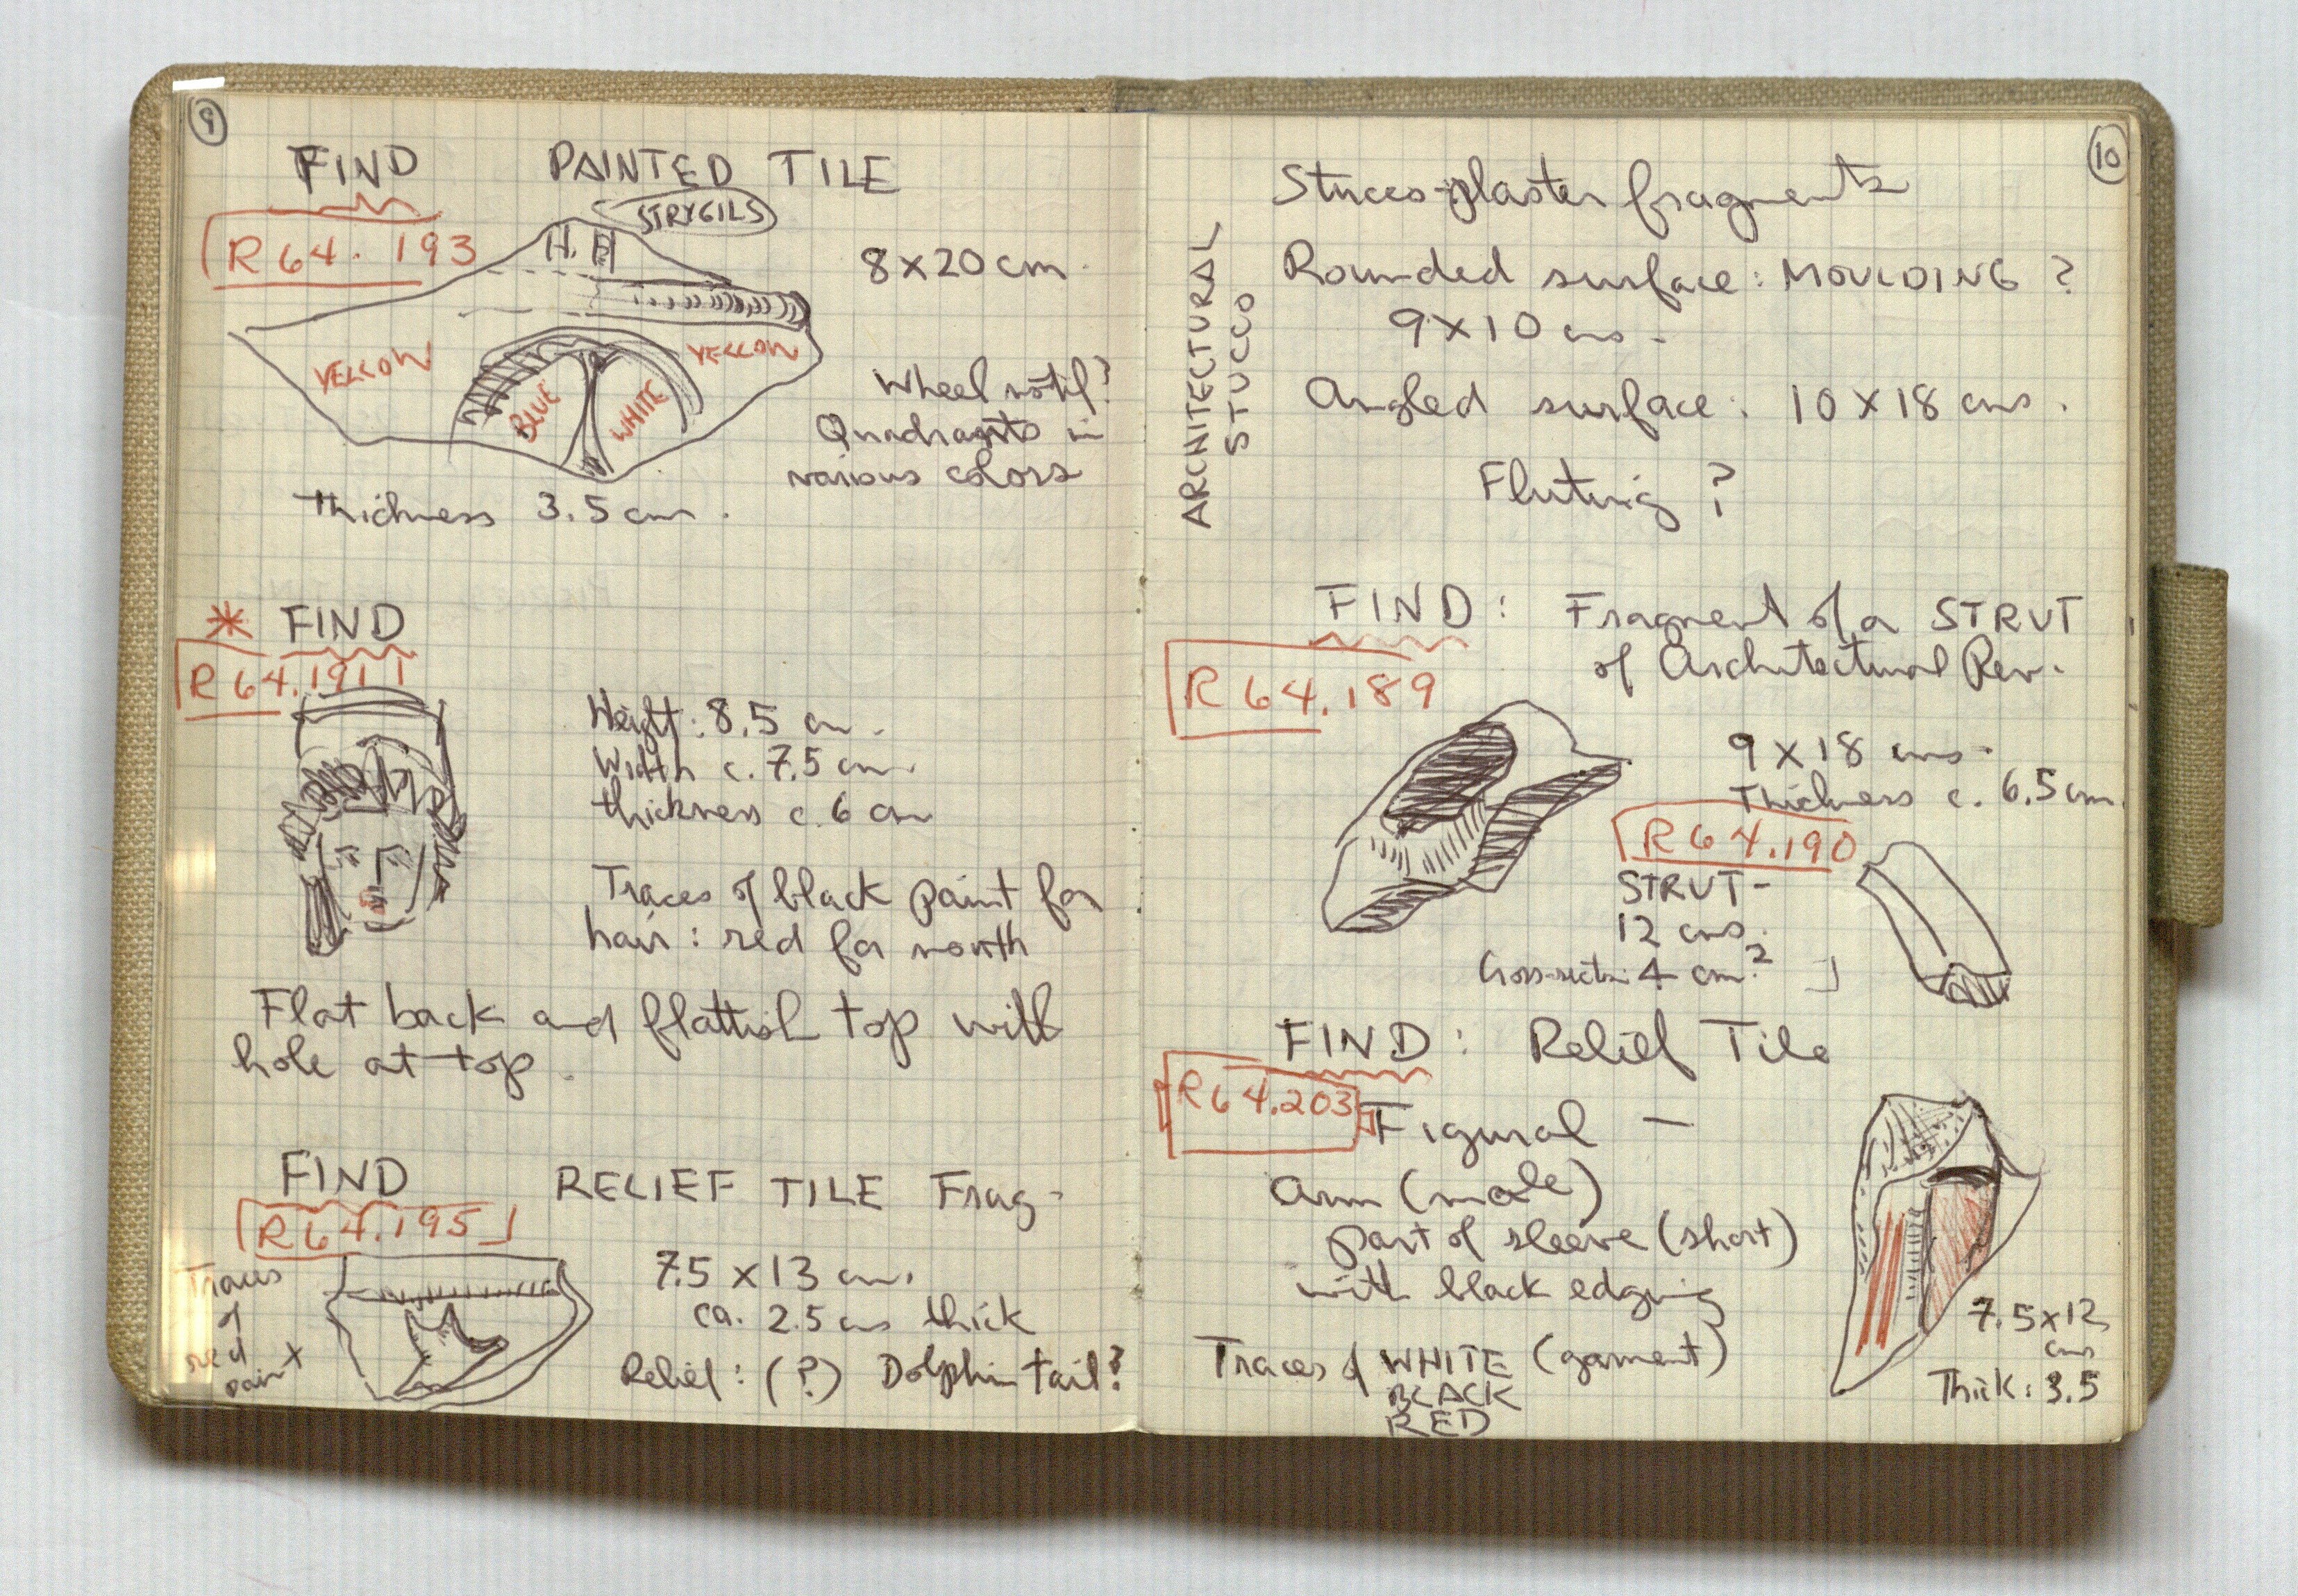 9
FIND PAINTED TILE
STRYGILS
R 64. 193
8 x 20 cm.
YELLOW
YELLOW
BLUE
WHITE
Wheel motif?
Quadrants in
various colors
thickness 3.5 cm.
* FIND
R 64.191
Height: 8.5 cm.
Width c. 7.5 cm.
thickness c. 6 cm
Traces of black paint for
hair: red for mouth
Flat back and flattish top with
hole at top.
FIND RELIEF TILE Frag-
R 64.195
Traces
of
red
paint
7.5 x 13 cm.
ca. 2.5 cms thick
Relief: (?) Dolphin tail?
10
ARCHITECTURAL
STUCCO
Stucco-plaster fragments
Rounded surface: MOULDING ?
9 x 10 cms.
Angled surface: 10 x 18 cms.
Fluting ?
FIND: Fragment of a STRUT
of Architectural Rev.
R 64.189
9 x 18 cms.
Thickness c. 6.5 cm.
R 64.190
STRUT-
12 cms.
Cross-sectn: 4 cm.²
FIND: Relief Tile
R 64.203
Figural -
Arm (male)
part of sleeve (short)
with black edging
Traces of WHITE (garment)
BLACK
RED
7.5 x 12
cms
Thick: 3.5